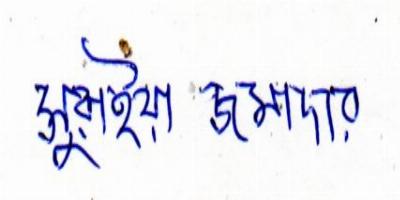 সুরাইয়া জমাদার